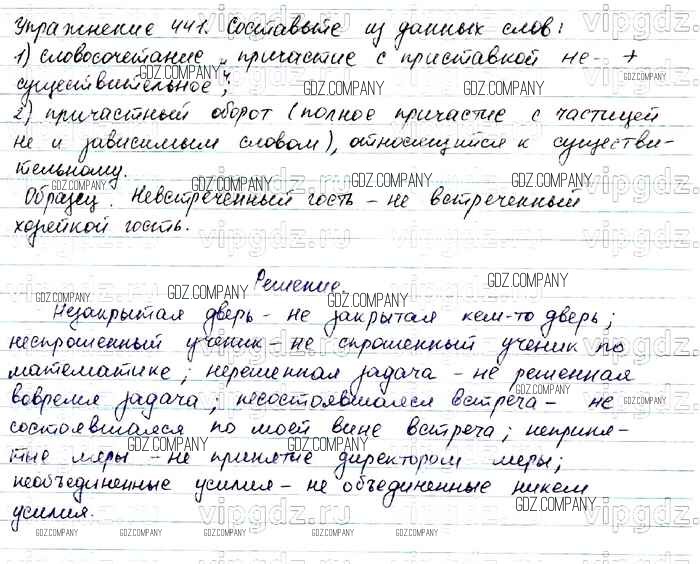 Упражнение 441. Составьте из данных слов:
1) словосочетание „причастие с приставкой не- +
существительное“;
2) причастный оборот (полное причастие с частицей
не и зависимым словом), относящийся к существи-
тельному.
Образец. Невстреченный гость – не встреченный
хозяйкой гость.
Решение.
Незакрытая дверь – не закрытая кем-то дверь;
неспрошенный ученик – не спрошенный ученик по
математике; нерешенная задача – не решенная
вовремя задача; несостоявшаяся встреча – не
состоявшаяся по моей вине встреча; неприня-
тые меры – не принятие директором меры;
необъединенные усилия – не объединенные никем
усилия.